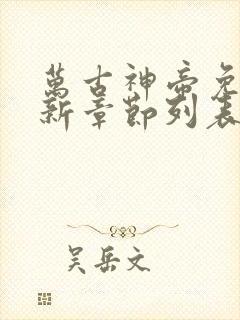 萬古神帝免
新章節列表
吴岳文